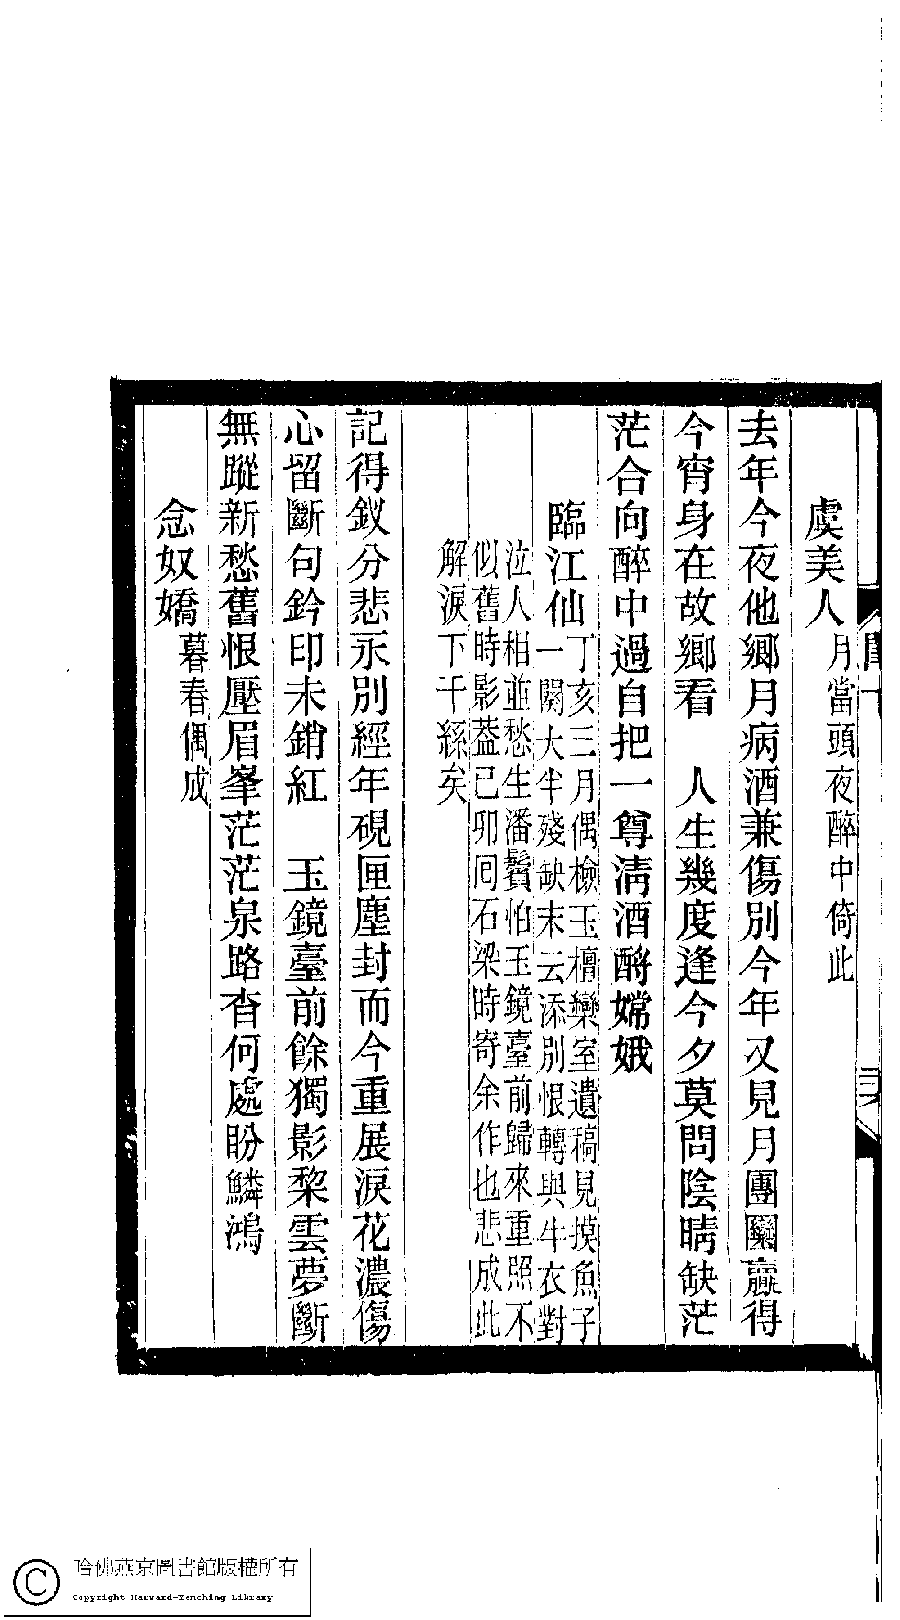 虞美人月當頭夜醉中倚此
去年今夜他鄉月病酒兼傷別今年又見月團圞贏得
今宵身在故鄉看　人生幾度逢今夕莫問陰晴缺茫
茫合向醉中過自把一尊清酒酹嫦娥
臨江仙丁亥三月偶檢玉檀欒室遺稿見摸魚子
一闋大半殘缺末云添別恨轉與牛衣對
泣人相並愁生潘鬢怕玉鏡臺前歸來重照不
似舊時影葢己卯囘石梁時寄余作也悲成此
解淚下千絲矣
記得釵分悲永別經年硯匣塵封而今重展淚花濃傷
心留斷句鈐印未銷紅　玉鏡臺前餘獨影棃雲夢斷
無蹤新愁舊恨壓眉峯茫茫泉路杳何處盼鱗鴻
念奴嬌暮春偶成
哈佛燕京圖書館版權所有
Copyright Harvard-Yenching Library